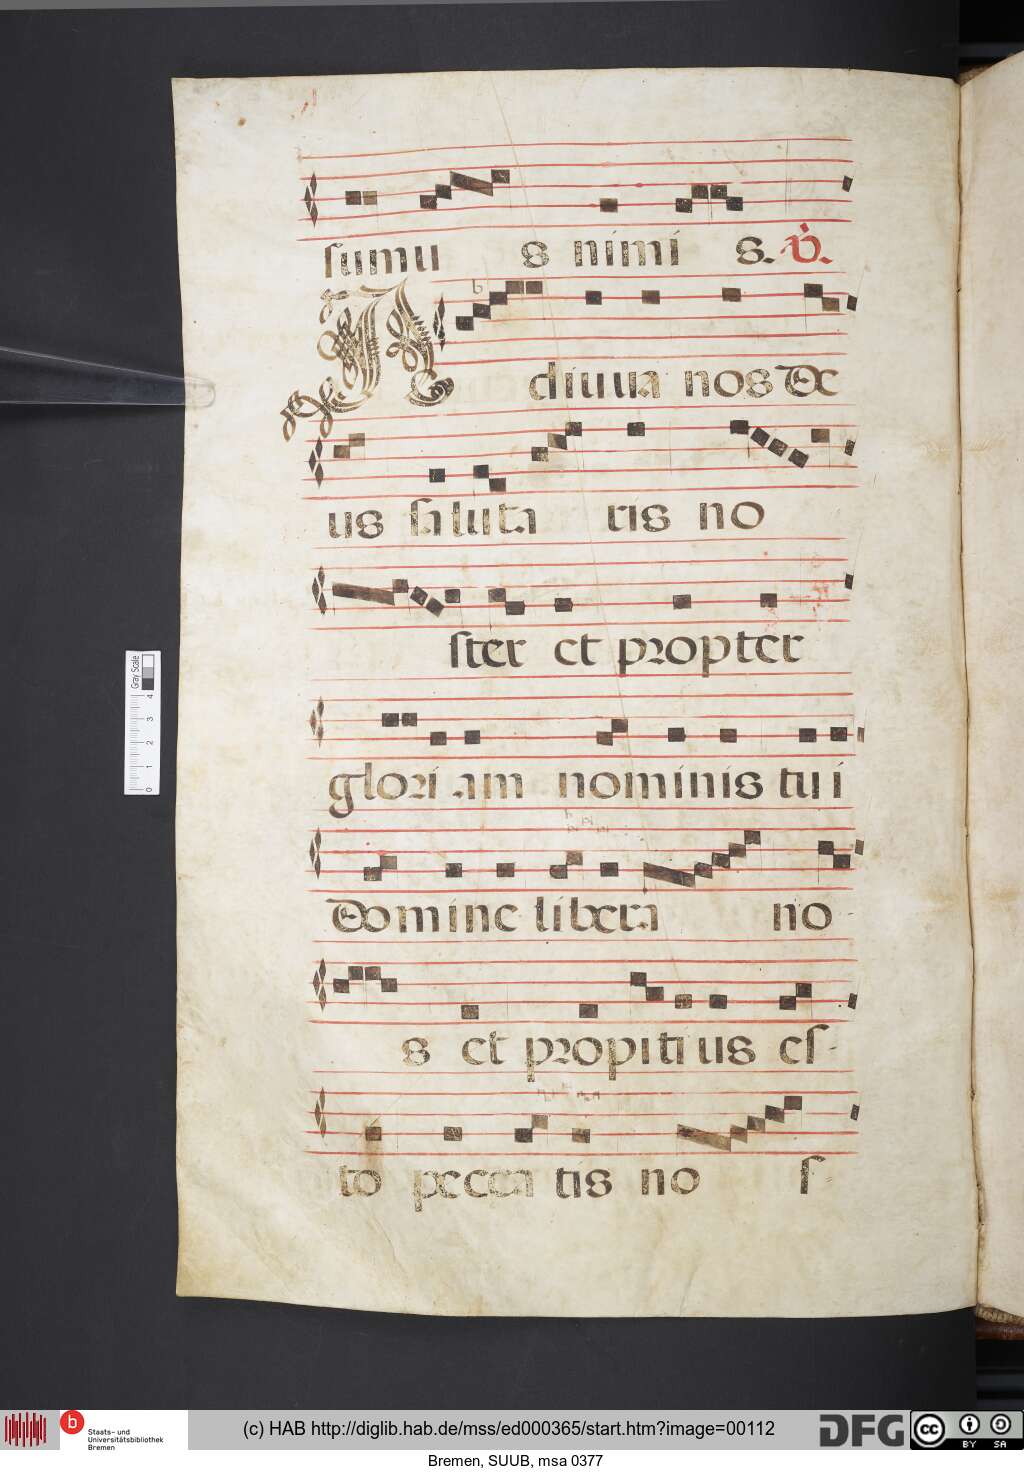 sumu s nimi s. V.
A diuua nos De
us saluta ris no
ster et propter
glori am nominis tui
Domine libera no
s et propitius es-
to pecca tis no s
Gray Scale
4
3
2
1
0
b Staats- und Universitätsbibliothek Bremen
(c) HAB http://diglib.hab.de/mss/ed000365/start.htm?image=00112
DFG
cc BY SA
Bremen, SUUB, msa 0377